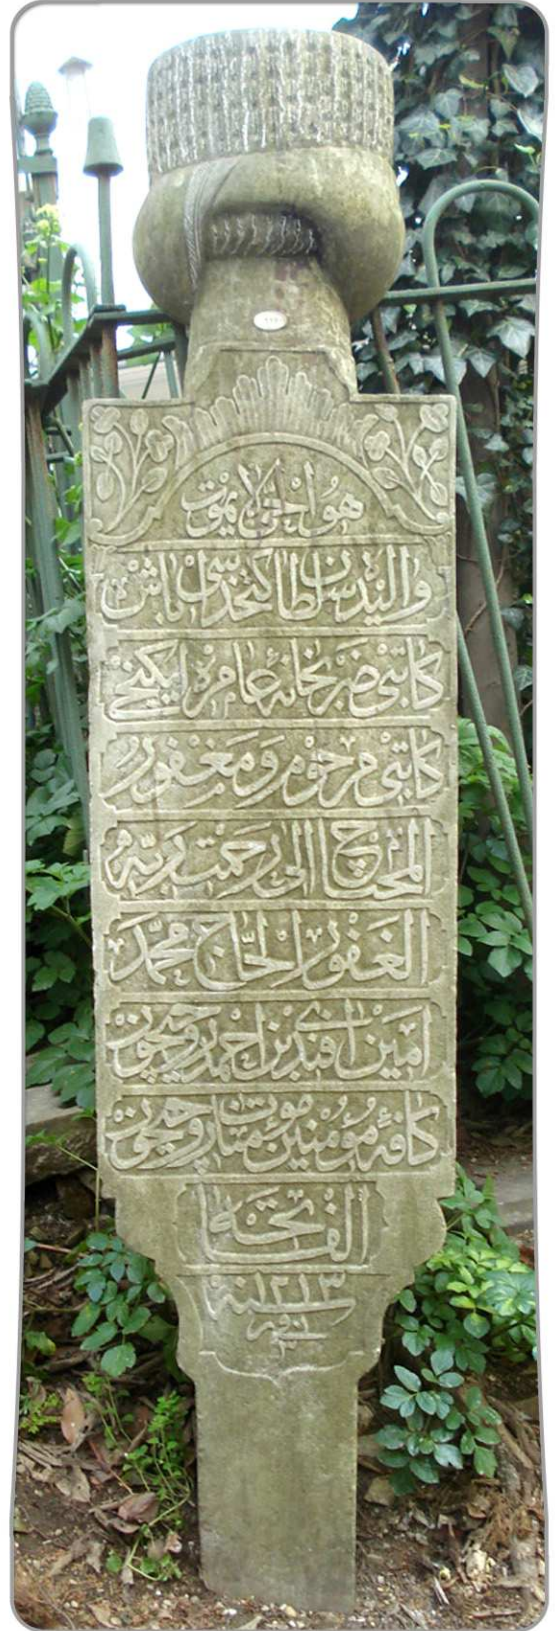 هو الحي لا يموت
والیدۀ سلطان كتخداسی باش
كاتبی ضربخانۀ عامره ایكنجی
كاتبی مرحوم و مغفور
المحتاج الی رحمت ربه
الغفور الحاج محمد
امین افندینك روحیچون
كافۀ مؤمنین روحیچون
الفاتحه
سنه ١٢١٣